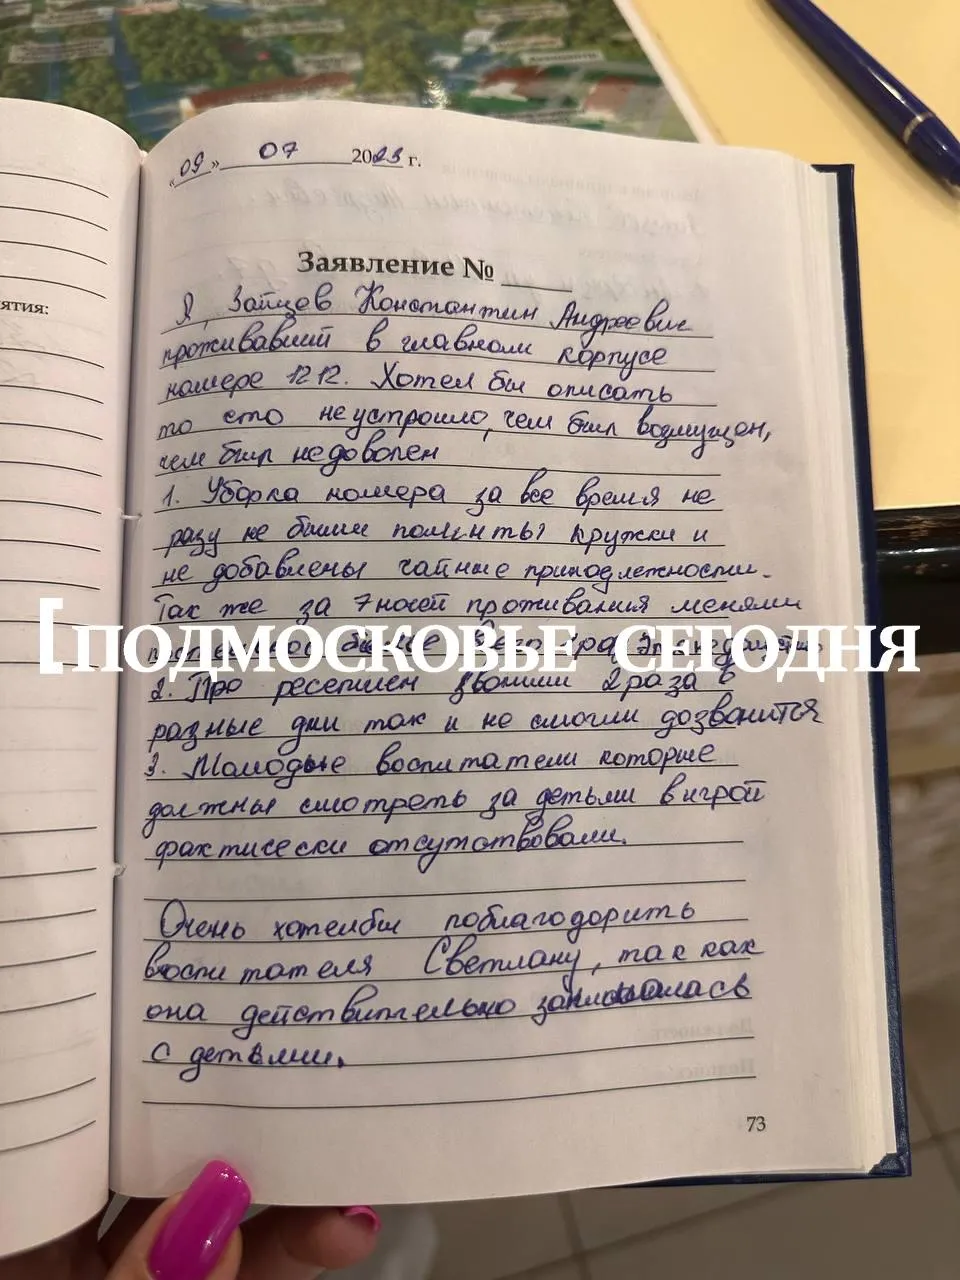 ятия:
«09» 07 2023 г.
Заявление №
Я, Зайцев Константин Андреевич
проживавший в главном корпусе
номере 1212. Хотел бы описать
то сто не устроило, чем был возмущен,
чем был недоволен
1. Уборка номера за все время не
разу не были помыты кружки и
не добавлены чайные принодлежности.
Так же за 7 ночей проживания меняли
[ПОДМОСКОВЬЕ СЕГОДНЯ
2. Про ресепшен звонили 2 раза в
разные дни так и не смогли дозвонится
3. Молодые воспитатели которые
должны смотреть за детьми в игрой
фактически отсутствовали.
Очень хотелбы поблагодорить
воспитателя Светлану, так как
она действительно занималась
с детьми.
73